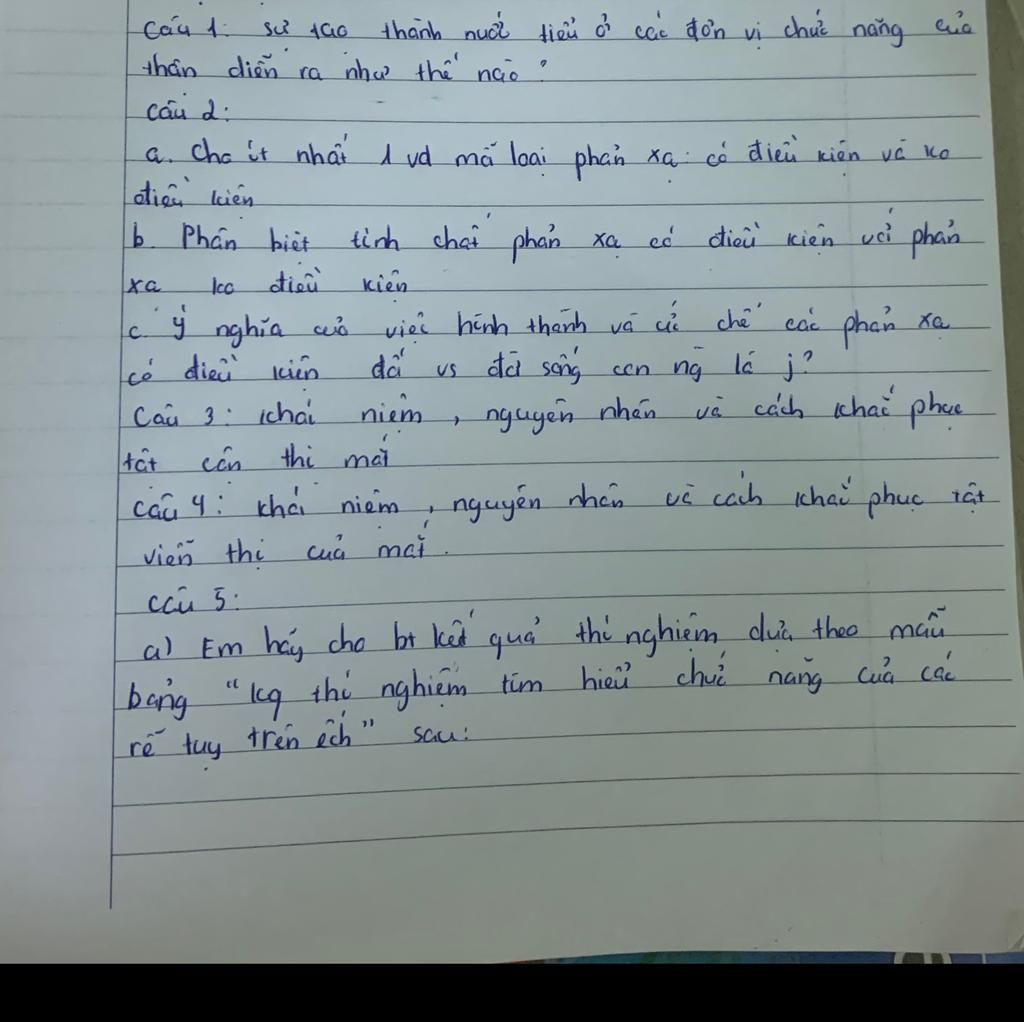 Câu 1: sự tạo thành nước tiểu ở các đơn vị chức năng của
thận diễn ra như thế nào?
Câu 2:
a. Cho ít nhất 1 vd mỗi loại phản xạ: có điều kiện và ko
điều kiện
b. Phân biệt tính chất phản xạ có điều kiện với phản
xạ ko điều kiện
c. Ý nghĩa của việc hình thành và ức chế các phản xạ
có điều kiện đối vs đời sống con ng là j?
Câu 3: Khái niệm, nguyên nhân và cách khắc phục
tật cận thị mắt
Câu 4: Khái niệm, nguyên nhân và cách khắc phục tật
viễn thị của mắt.
Câu 5:
a) Em hãy cho bt kết quả thí nghiệm dựa theo mẫu
bảng "kq thí nghiệm tìm hiểu chức năng của các
rễ tủy trên ếch" sau: